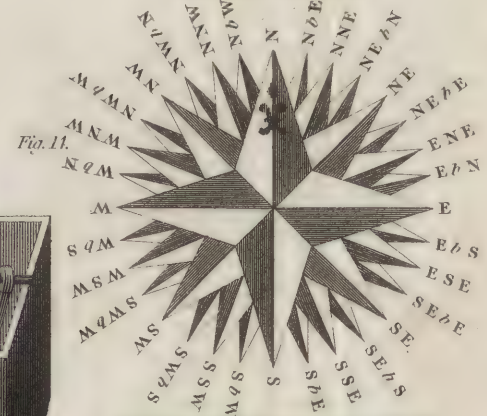 Fig. 11.
N
NbE
NNE
NEbN
NE
NEbE
ENE
EbN
E
EbS
ESE
SEbE
SE.
SEbS
SSE
SbE
S
SbW
SSW
SWbS
SW
SWbW
WSW
WbS
W
WbN
WNW
NWbW
NW
NWbN
NNW
NbW